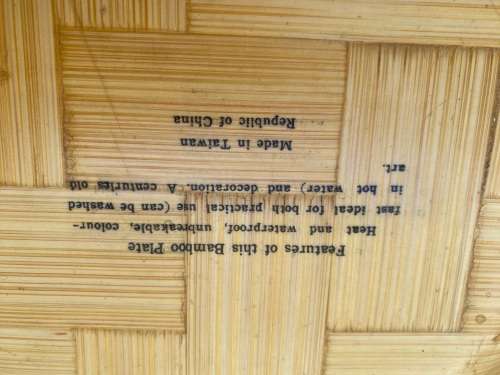 Features of this Bamboo Plate
Heat and waterproof, unbreakable, colour-
fast ideal for both practical use (can be washed
in hot water) and decoration. A centuries old
art.
Made in Taiwan
Republic of China